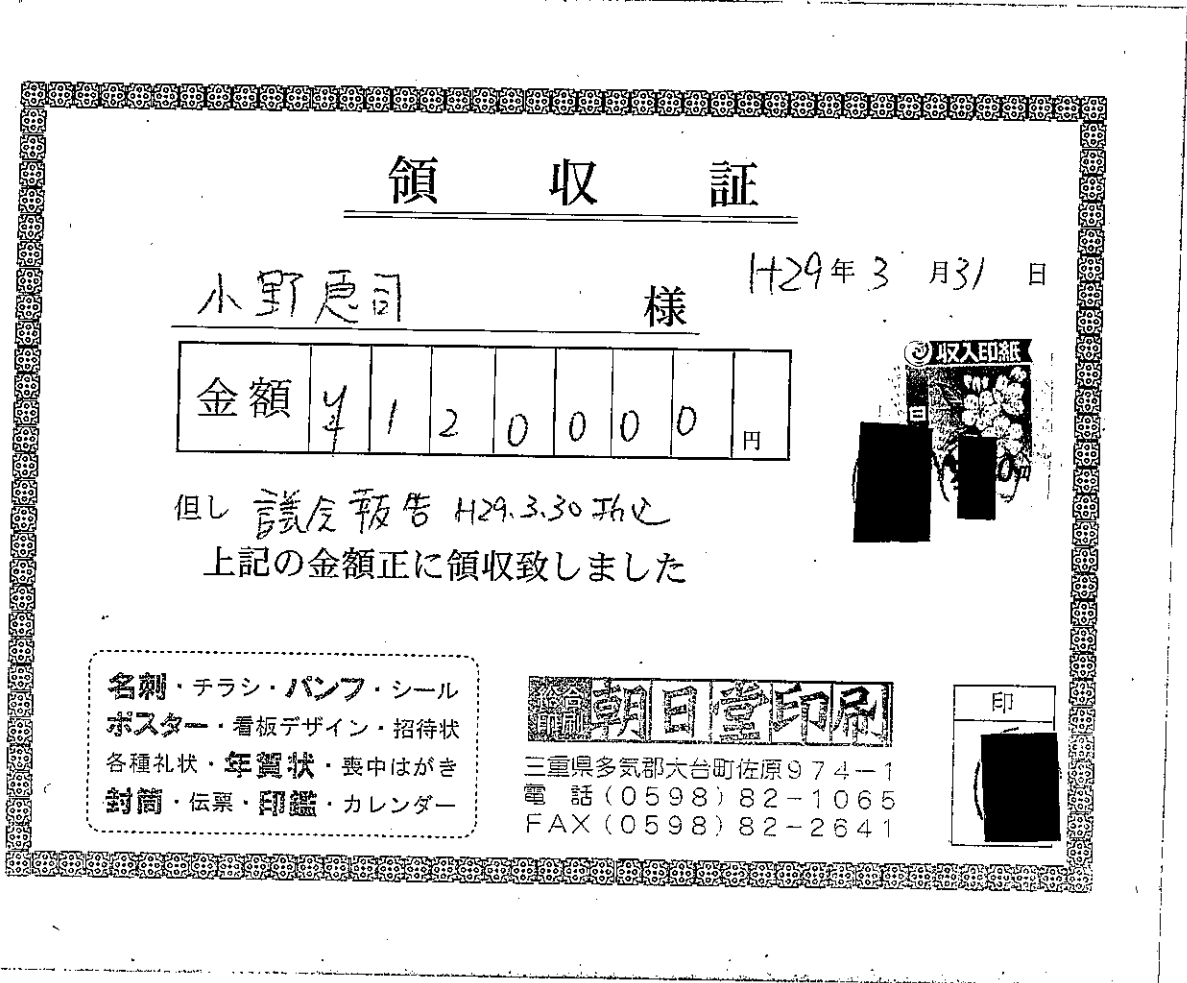 領 収 証
H29年3月31日
小野恵司 様
収入印紙
金額 ¥120000円
但し 議会報告 H29.3.30折込
上記の金額正に領収致しました
名刺・チラシ・パンフ・シール
ポスター・看板デザイン・招待状
各種礼状・年賀状・喪中はがき
封筒・伝票・印鑑・カレンダー
朝日堂印刷
三重県多気郡大台町佐原974-1
電 話(0598)82-1065
FAX(0598)82-2641
印